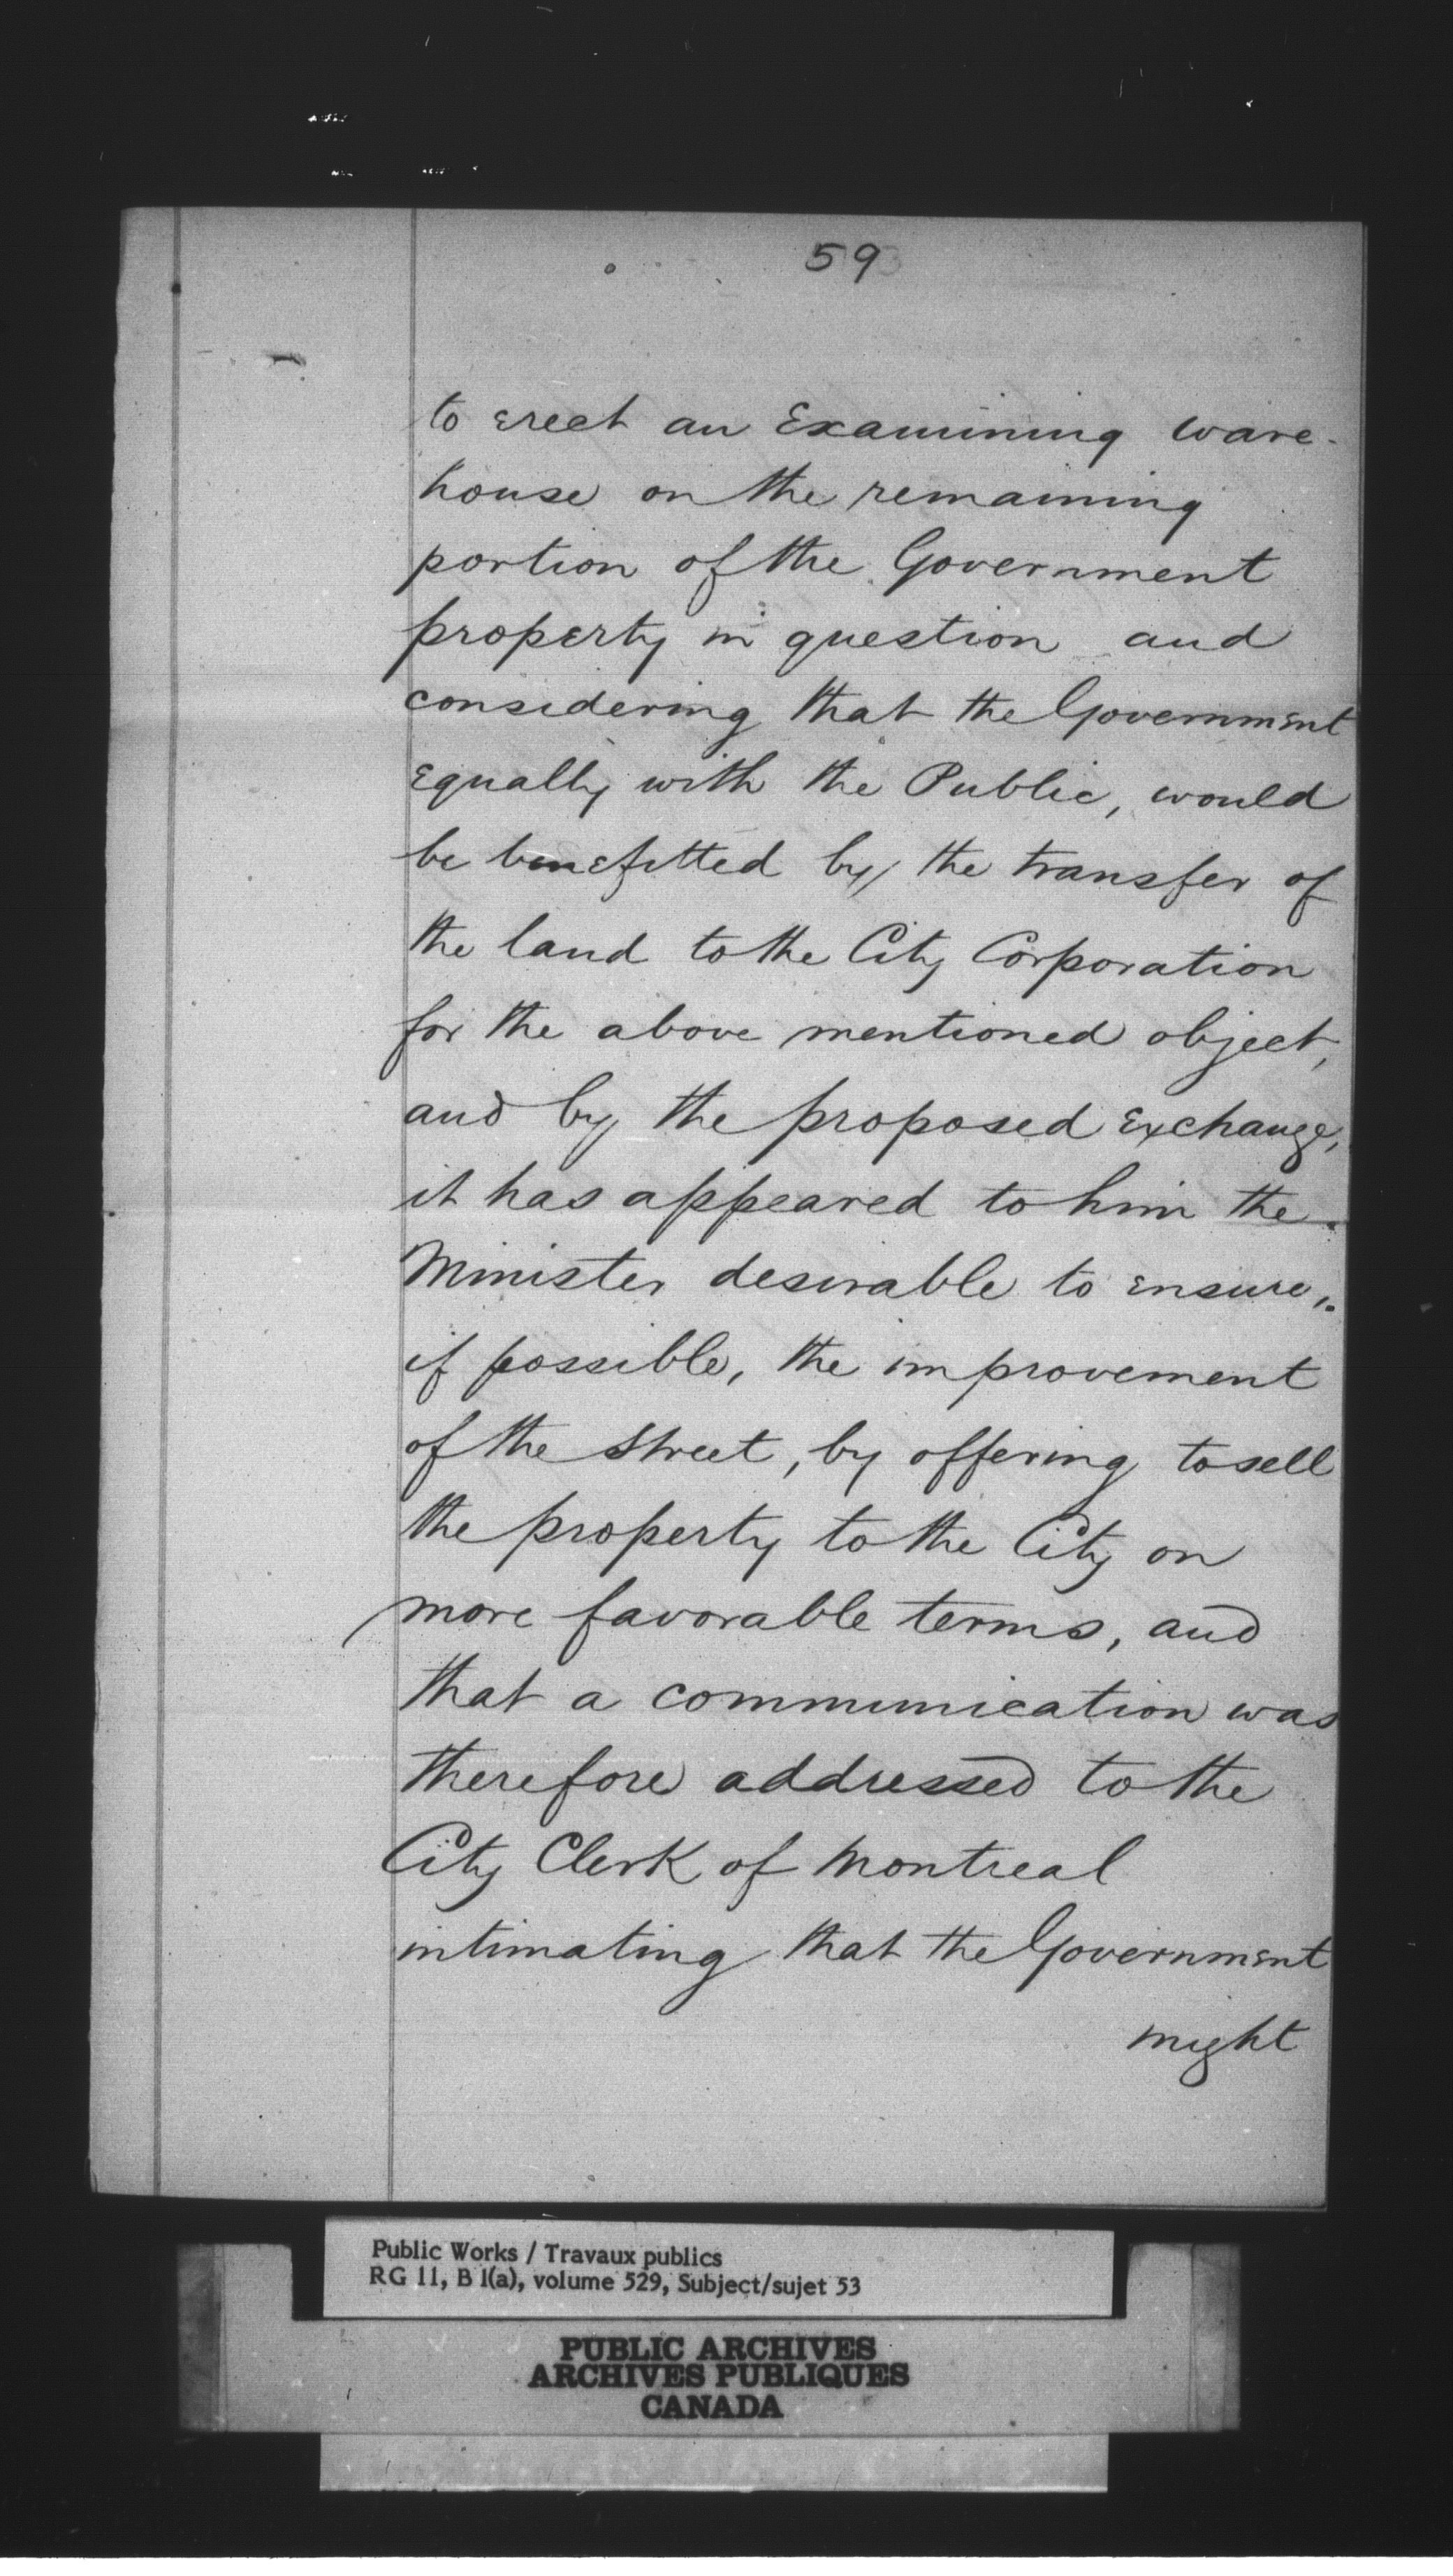 59
to erect an Examining ware-
house on the remaining
portion of the Government
property in question and
considering that the Government
equally with the Public, would
be benefitted by the transfer of
the land to the City Corporation
for the above mentioned object,
and by the proposed exchange,
it has appeared to him the
Minister desirable to ensure,
if possible, the improvement
of the Street, by offering to sell
the property to the City on
more favorable terms, and
that a communication was
therefore addressed to the
City Clerk of Montreal
intimating that the Government
might
Public Works / Travaux publics
RG 11, B 1(a), volume 529, Subject/sujet 53
PUBLIC ARCHIVES
ARCHIVES PUBLIQUES
CANADA